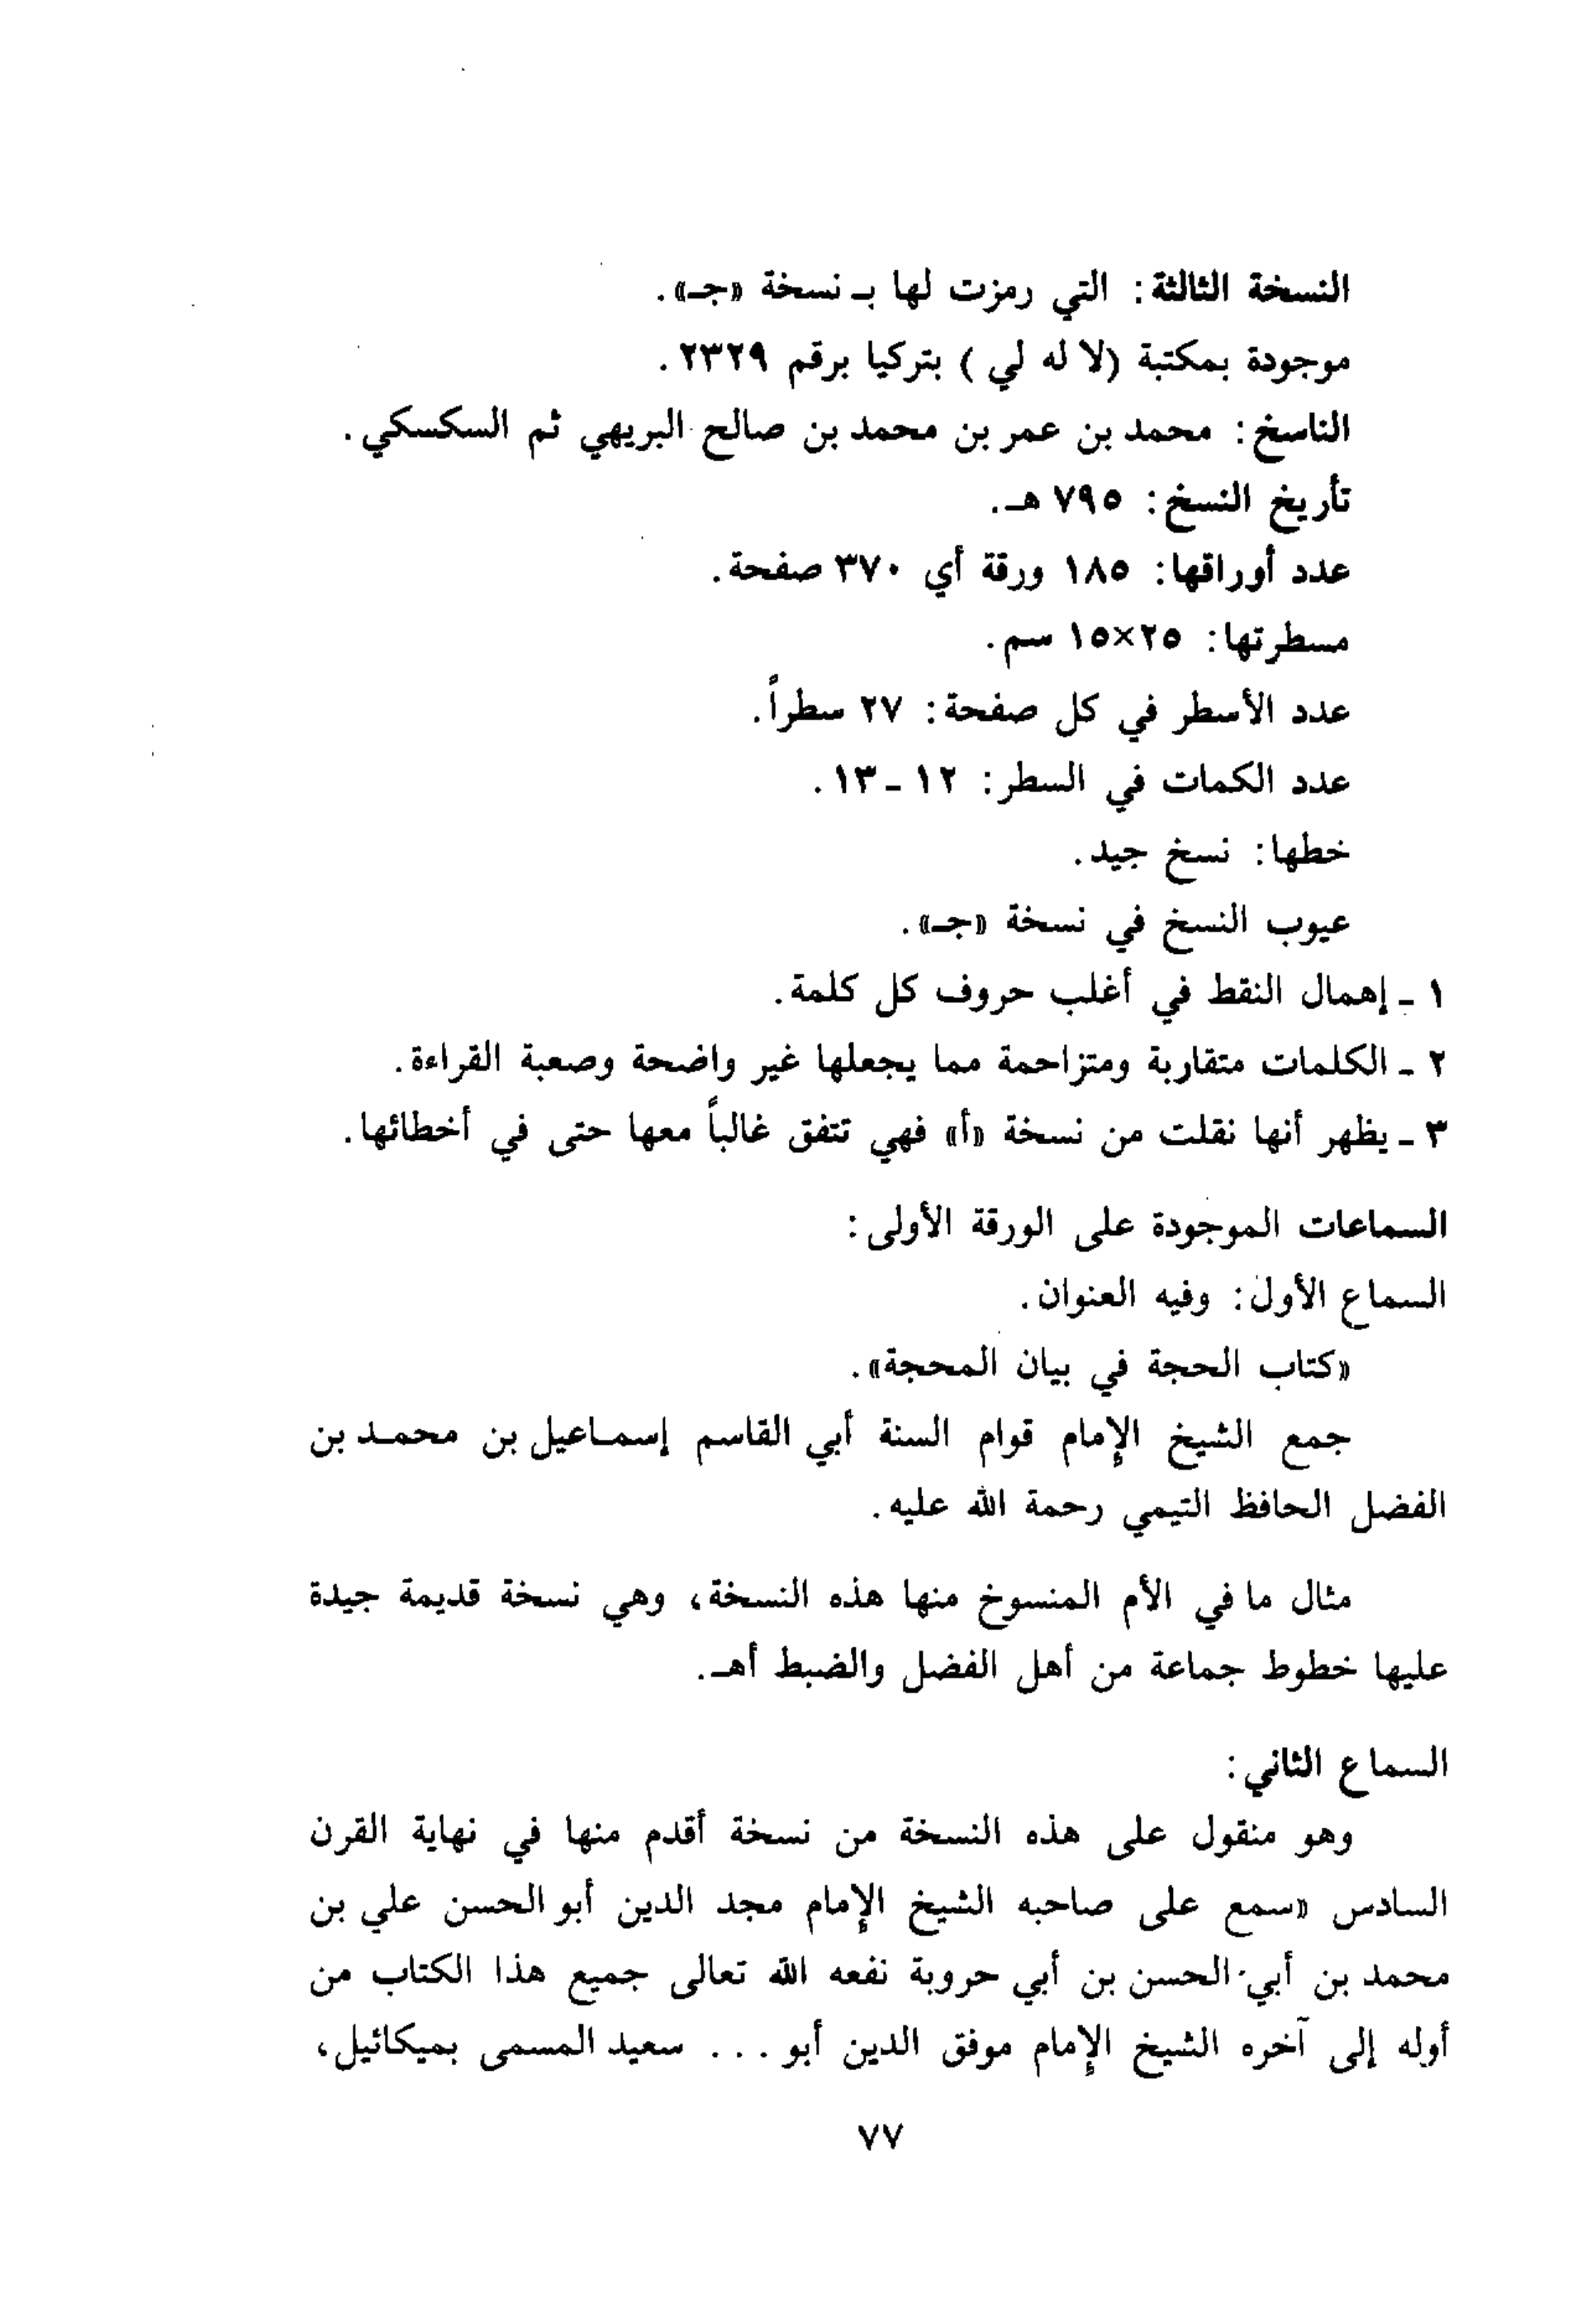 النسخة الثالثة: التي رمزت لها بـ نسخة «جـ».
موجودة بمكتبة (لا له لي ) بتركيا برقم ٢٣٢٩.
الناسخ: محمد بن عمر بن محمد بن صالح البريهي ثم السكسكي.
تأريخ النسخ: ٧٩٥ هـ.
عدد أوراقها: ١٨٥ ورقة أي ٣٧٠ صفحة.
مسطرتها: ٢٥×١٥ سم.
عدد الأسطر في كل صفحة: ٢٧ سطراً.
عدد الكمات في السطر: ١٢ - ١٣.
خطها: نسخ جيد.
عيوب النسخ في نسخة «جـ».
١ - إهمال النقط في أغلب حروف كل كلمة.
٢ - الكلمات متقاربة ومتزاحمة مما يجعلها غير واضحة وصعبة القراءة.
٣ - يظهر أنها نقلت من نسخة «أ» فهي تتفق غالباً معها حتى في أخطائها.
السماعات الموجودة على الورقة الأولى:
السماع الأول: وفيه العنوان.
«كتاب الحجة في بيان المحجة».
جمع الشيخ الإمام قوام السنة أبي القاسم إسماعيل بن محمد بن
الفضل الحافظ التيمي رحمة الله عليه.
مثال ما في الأم المنسوخ منها هذه النسخة، وهي نسخة قديمة جيدة
عليها خطوط جماعة من أهل الفضل والضبط أهـ.
السماع الثاني:
وهو منقول على هذه النسخة من نسخة أقدم منها في نهاية القرن
السادس «سمع على صاحبه الشيخ الإمام مجد الدين أبو الحسن علي بن
محمد بن أبي الحسن بن أبي حروبة نفعه الله تعالى جميع هذا الكتاب من
أوله إلى آخره الشيخ الإمام موفق الدين أبو . . . سعيد المسمى بميكائيل،
٧٧